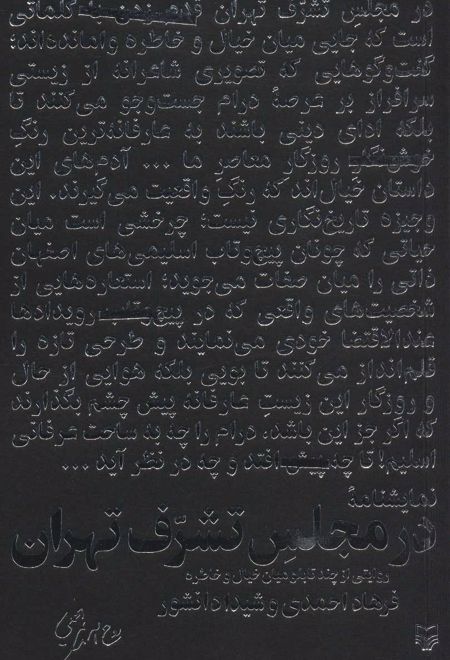 در مجلسِ تشرّف تهران کلماتی
است که جایی میان خیال و خاطره وامانده‌اند؛
گفت‌وگوهایی که تصویری شاعرانه از زیستی
سرافراز بر عرصهٔ درام جست‌وجو می‌کنند تا
بلکه ادای دینی باشند به عارفانه‌ترین رنگِ
روزگار معاصر ما ... آدم‌های این
داستان خیال‌اند که رنگِ واقعیت می‌گیرند. این
وجیزه تاریخ‌نگاری نیست؛ چرخشی است میان
حیاتی که چونان پیچ‌وتاب اسلیمی‌های اصفهان
ذاتی را میان صفات می‌جوید؛ استعاره‌هایی از
شخصیت‌های واقعی که در رویدادها
عندالاقتضا خودی می‌نمایند و طرحی تازه را
قلم‌انداز می‌کنند تا بویی بلکه هوایی از حال
و روزگار این زیستِ عارفانه پیش چشم بگذارند
که اگر جز این باشد، درام را چه به ساحت عرفانی
اسلیم! تا چه پیش افتد و چه در نظر آید ...
نمایشنامهٔ
در مجلسِ تشرّف تهران
روایتی از چند تابلو میان خیال و خاطره
فرهاد احمدی و شیدا دانشور